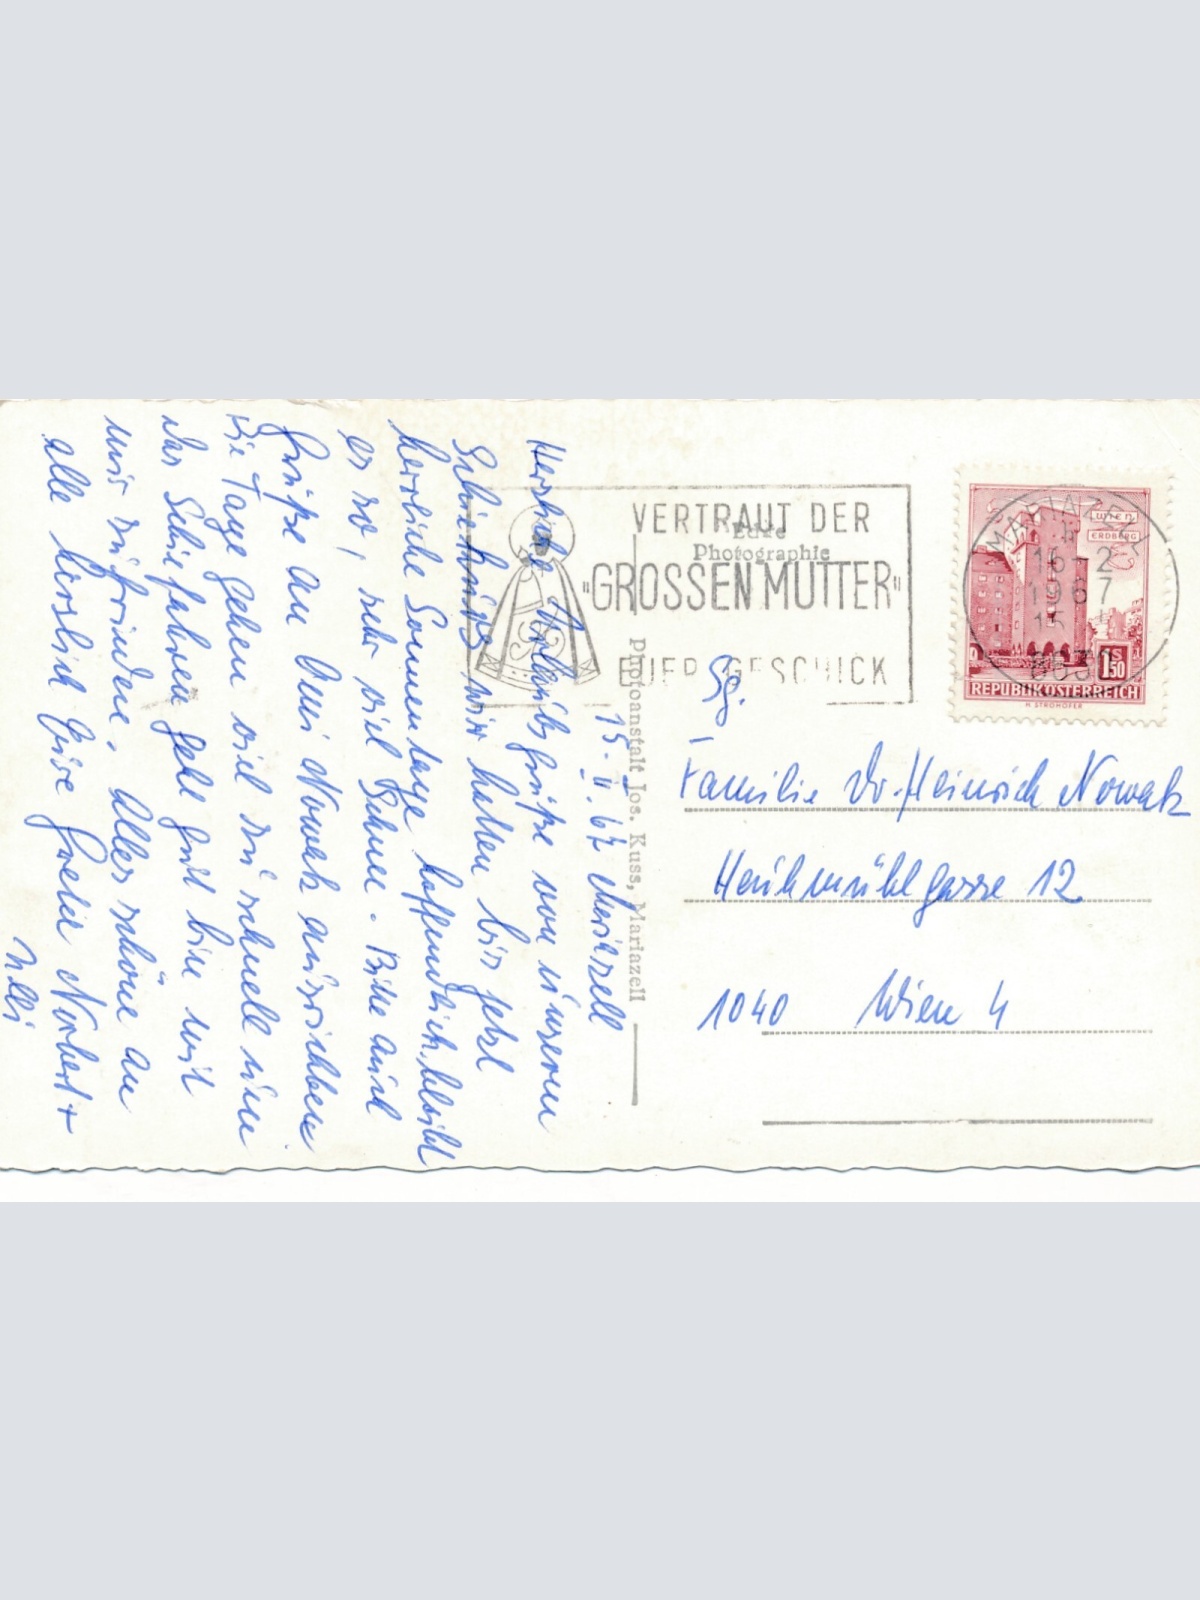 15. II. 67 Mariazell
Herzliche Urlaubsgrüße von unserem
wir hatten bis jetzt
herrliche Sonnentage hoffentlich bleibt
es so, sehr viel Schnee. Bitte auch
Grüße an Omi Nowak ausrichten
die Tage gehen viel zu schnell um
das Schiefahren geht gut bin mit
mir zufrieden. Alles schöne an
alle herzlich Eure Gretie Norbert +
Ulli
Echte
Photographie
Photoanstalt Jos. Kuss, Mariazell
VERTRAUT DER
"GROSSEN MUTTER"
EUER GESCHICK
MARIAZELL
16-2
1967
8630
WIEN
ERDBERG
1S50
REPUBLIK ÖSTERREICH
H. STROHOFER
Sg.
Familie Dr. Heinrich Nowak
Heühmühlgasse 12
1040 Wien 4